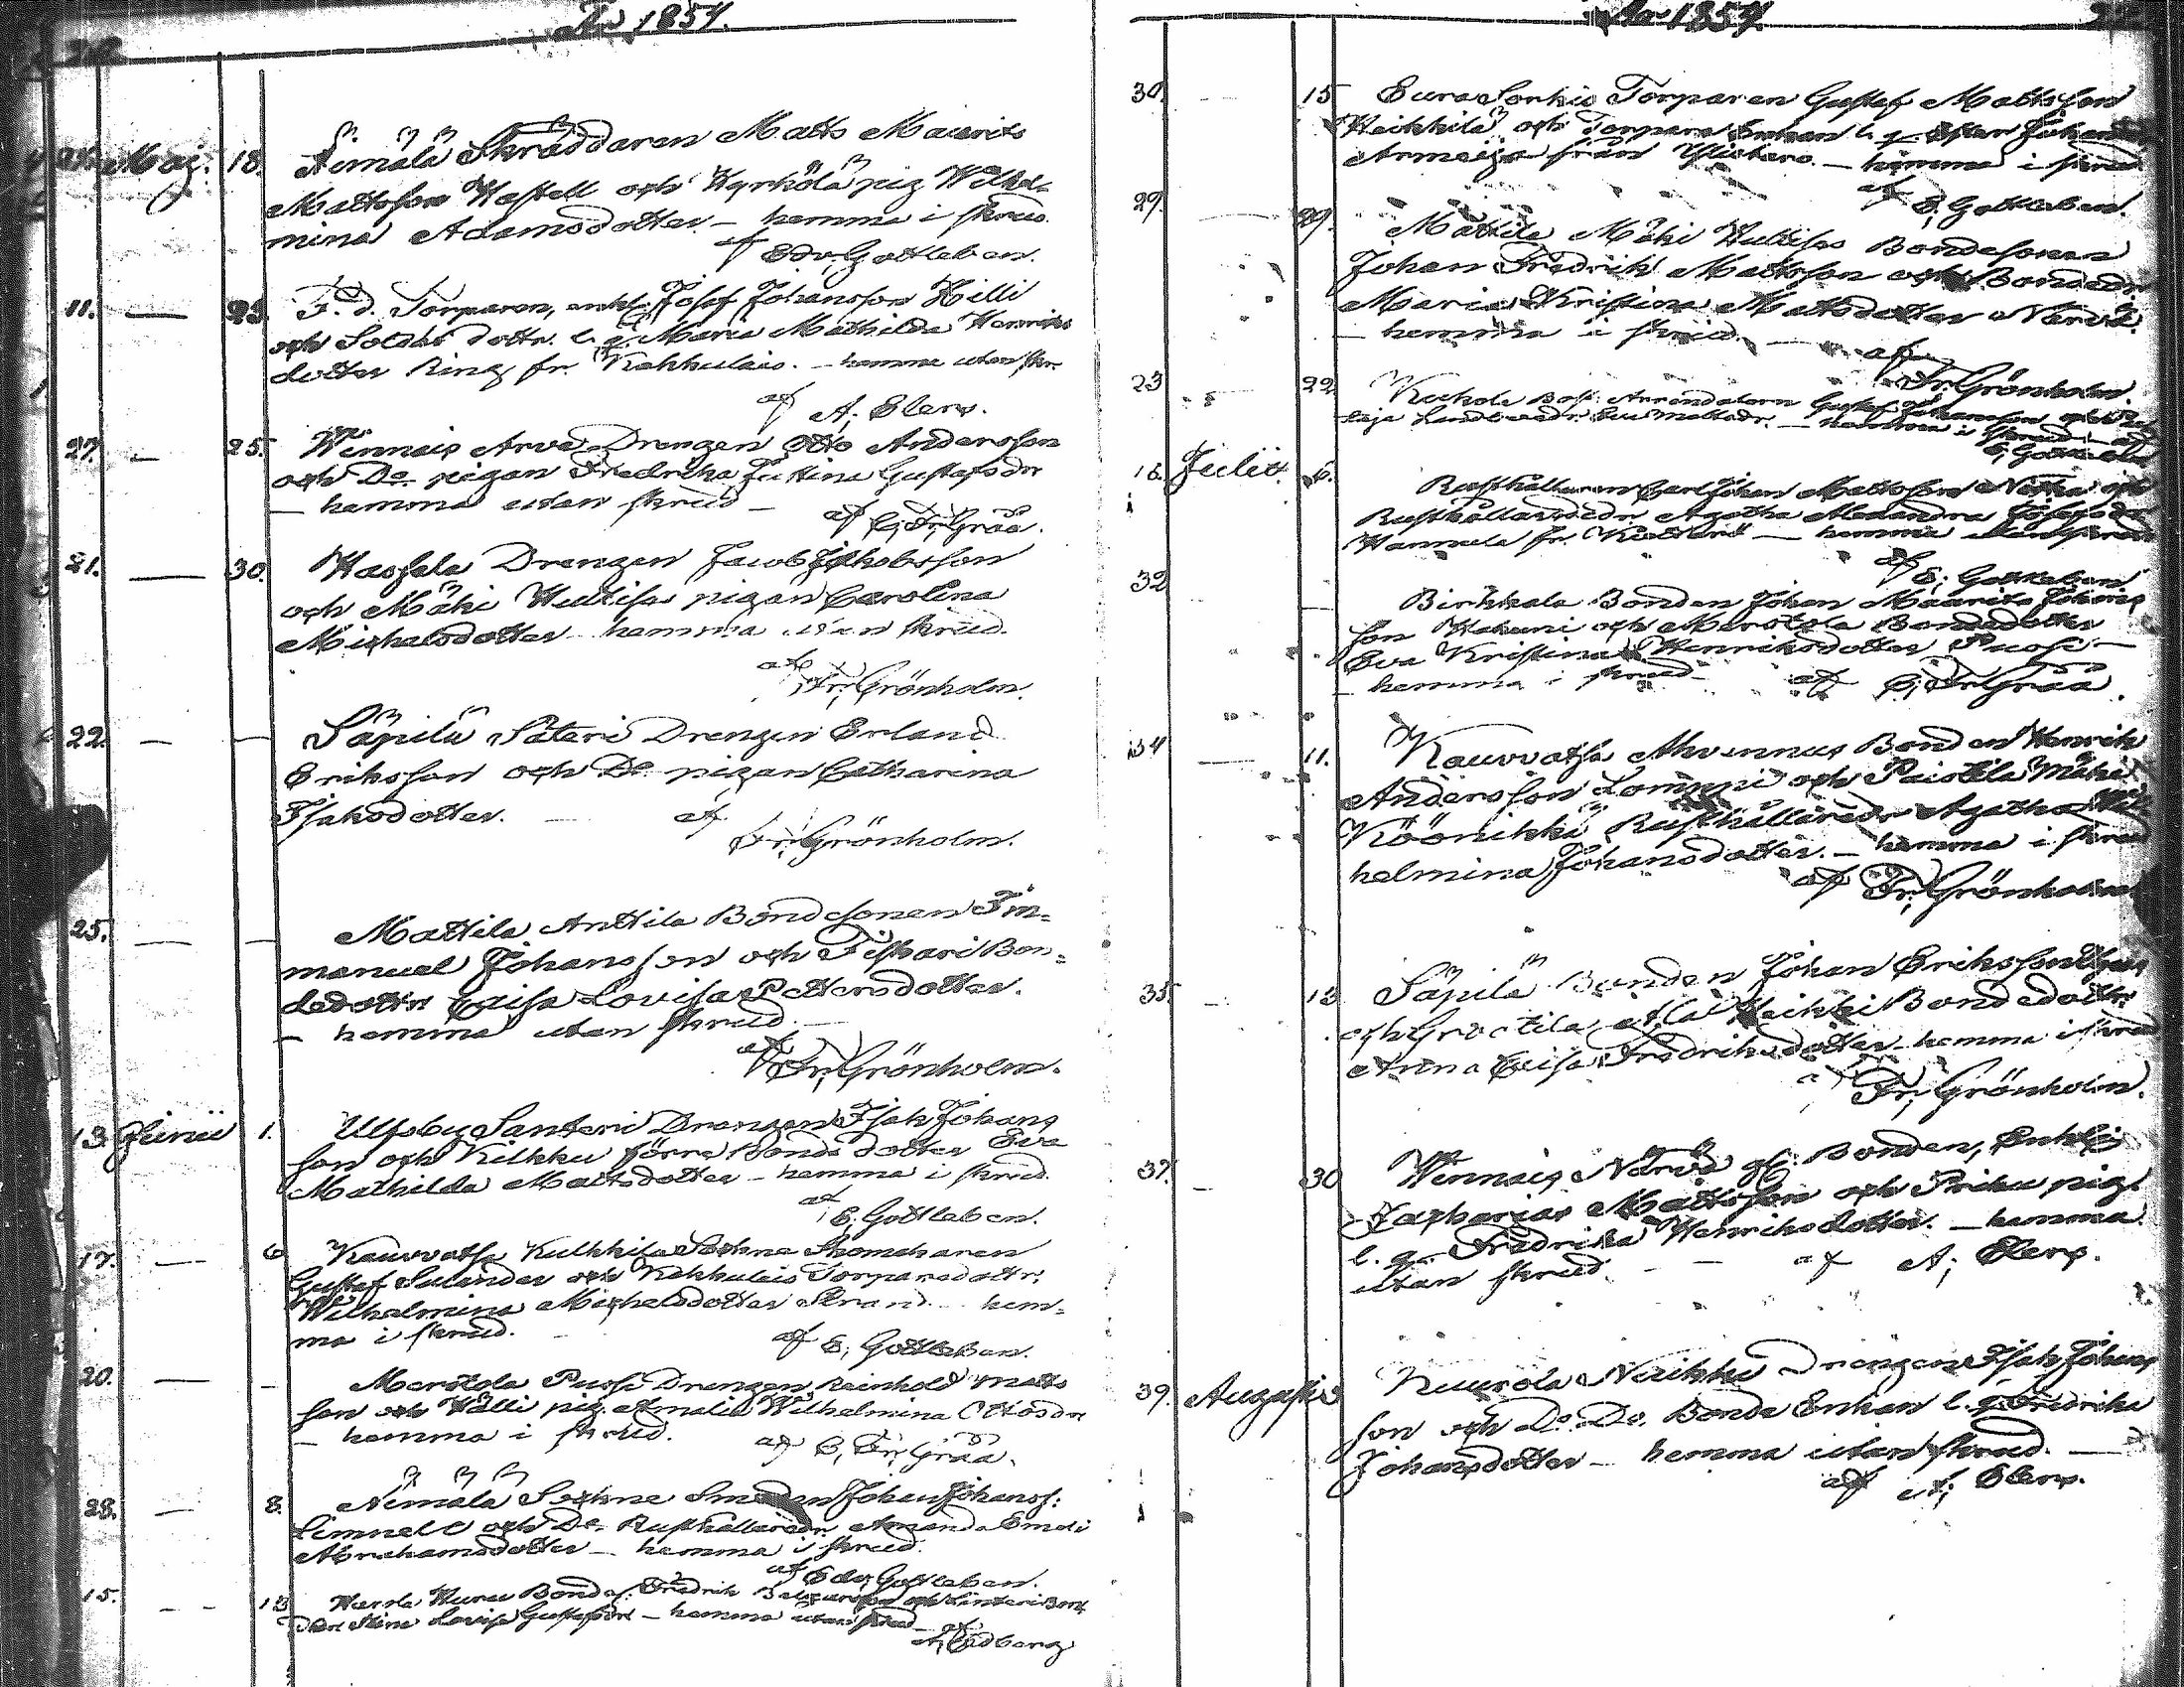 Ao 1857.
24. Maj. 18. Äimälä Skräddaren Matts Maurits
Mattsson Westell och Kyrkölä pig. Wilhel-
mina Adamsdotter. – hemma i skrud.
af Edv; Gottleben.
11. — 23. F. d. Torparen, enkl. Josef Johansson Hilli
och Soldat dottr. l. q. Maria Mathilda Henriks
dotter Ring fr. Kakkulais. – hemma utan skr.
af A; Elers.
27. — 25. Wennais Arva Drengen Otto Andersson
och Do pigan Fredrika Justina Gustafsdr
— hemma utan skrud —
af C; Fr; Gråå.
21. — 30. Hassala Drengen Jacob Jakobsson
och Mäki Hullisas pigan Carolina
Michelsdotter hemma utan skrud.
af Fr; Grönholm.
22. — — Säpilä Säteri Drengen Erland
Eriksson och Do pigan Catharina
Isaksdotter. — af
Fr; Grönholm.
25. — — Mattila Anttila Bondesonen Im-
manuel Johansson och Tiskari Bon-
dedottr Caisa Lovisa Pettersdotter.
— hemma utan skrud —
af Fr; Grönholm.
13. Junii 1. Ulfsby Santeri Drengen Isak Johans
son och Kilkku förra Bonde dotter Eva
Mathilda Mattsdotter – hemma i skrud.
af E; Gottleben.
17. — 6. Kauvvatsa Kulkkila Sockne Skomakaren
Gustaf Sulander och Kakkulais Torparedottr.
Wilhelmina Michelsdotter Strand hem-
ma i skrud. af E; Gottleben.
20. — — Merstola Pussi Drengen Reinhold Matts
son och Hälli pig. Amalia Wilhelmina Ottosdr
— hemma i skrud. af C; Fr; Gråå.
28. — 8. Äimälä Sockne Smeden Johan Johanss:
Limnell och Do Rusthållaredr. Amanda Emeli
Abrahamsdotter — hemma i skrud.
af Edv; Gottleben.
15. — 13 Bondes. Fredrik och
Lovisa Gustafsdr – hemma utan skrud – af
A; Edberg
Ao 1857.
30. — 15 Eura Sorkis Torparen Gustaf Mattsson
Heikkilä och Torpare Enkan l. q. Ester Johans
från – hemma i skrud
af E; Gottleben.
29. — 29. Mattila Mäki Hullisas Bondesonen
Johan Fredrik Mattsson och Bondedr.
Maria Kristina Mattsdotter Närvä.
— hemma i skrud. — af
Fr; Grönholm.
23 — 22. Arrendatorn Gustaf Johansson och
Eva Mattsdr. — hemma i skrud – af
E; Gottleben
18. Julii. 6. Rusthållaren Carl Johan Mattsson och
Rusthållaredr Agatha Alexandra
Hannula fr. — hemma utan skrud
af E; Gottleben
32 — Birkkala Bonden Johan Maurits Johans
son och Merstola Bondedotter
Eva Kristina Henriksdotter Pussi —
– hemma i skrud – af C; Fr; Gråå.
34 — 11. Kauvvatsa Ahvennus Bonden Henrik
Andersson Lomppi och Paistila Mäki
Köönikkä Rusthållaredr Agatha Wil
helmina Johansdotter. – hemma i skrud
af Fr; Grönholm
35. — 13 Säpilä Bonden Johan Eriksson
och Heikki Bondedottr.
Anna Caisa Fredriksdotter hemma i skrud
af Fr; Grönholm.
37. — 30 Wennais Närvä gl: Bonden, Enkl;
Zacharias Mattsson och Prihu pig.
l. q. Fredrika Henriksdotter. – hemma
utan skrud. — — af A; Elers.
39. Augusti 3 Kuurola Nuikku Drengen Isak Johans
son och Do. Do. Bonde Enkan l. q. Fredrika
Johansdotter – hemma utan skrud. —
af A; Elers.